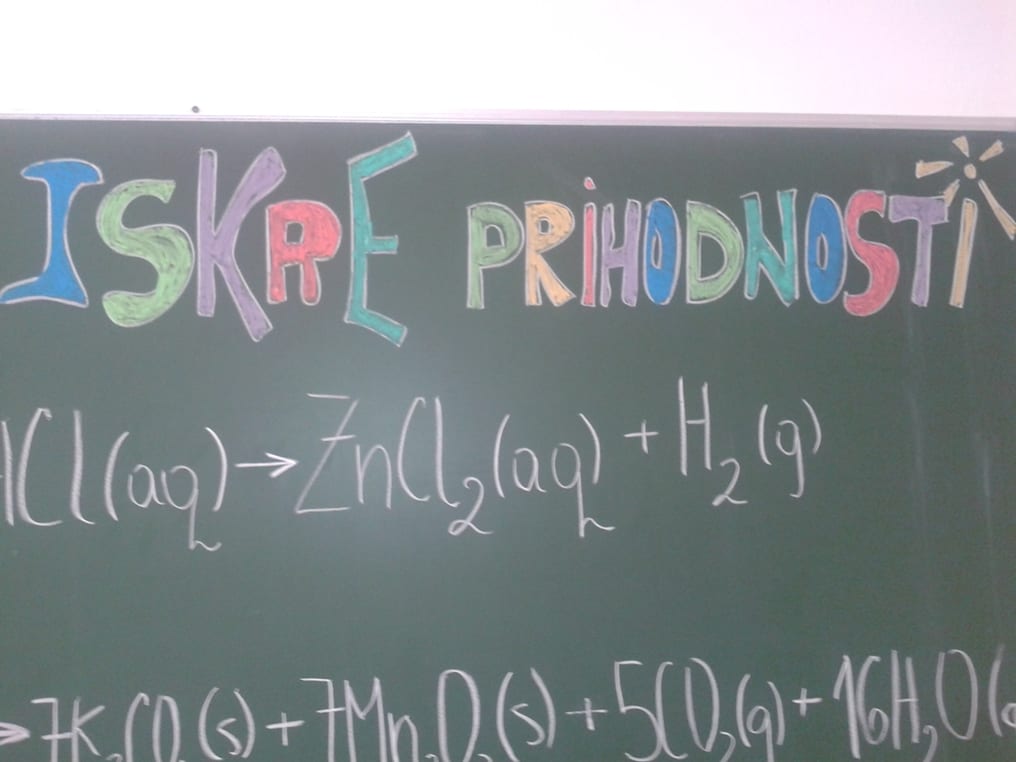 ISKRE PRIHODNOSTI
HCl(aq) → ZnCl₂(aq) + H₂(g)
→ 7K₂CO₃(s) + 7Mn₂O₃(s) + 5CO₂(g) + 16H₂O(